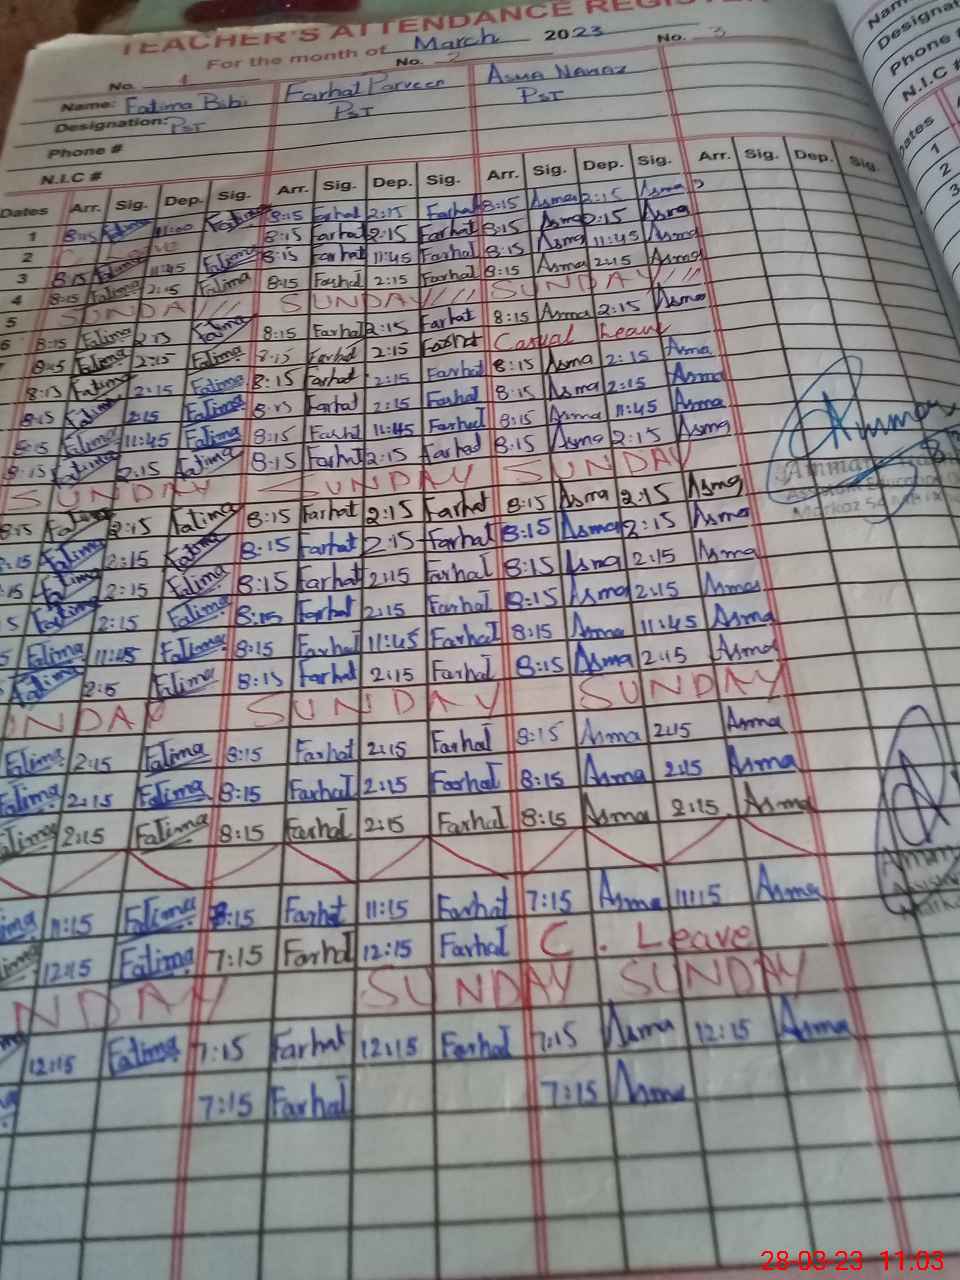 TEACHER'S ATTENDANCE REGISTER
For the month of March 2023
No. 1 No. 2 No. 3
Name: Fatima Bibi Farhat Parveen Asma Nawaz
Designation: PST PST PST
Phone #
N.I.C #
Dates Arr. Sig. Dep. Sig. Arr. Sig. Dep. Sig. Arr. Sig. Dep. Sig. Arr. Sig. Dep. Sig.
1 8:15 Fatima 11:00 Fatima 8:15 Farhat 2:15 Farhat 8:15 Asma 2:15 Asma
2 8:15 Farhat 2:15 Farhat 8:15 Asma 2:15 Asma
3 8:15 Fatima 11:45 Fatima 8:15 Farhat 11:45 Farhat 8:15 Asma 11:45 Asma
4 8:15 Fatima 2:15 Fatima 8:15 Farhat 2:15 Farhat 8:15 Asma 2:15 Asma
5 SUNDAY SUNDAY SUNDAY
6 8:15 Fatima 2:15 Fatima 8:15 Farhat 2:15 Farhat 8:15 Asma 2:15 Asma
8:15 Fatima 2:15 Fatima 8:15 Farhat 2:15 Farhat Casual Leave
8:15 Fatima 2:15 Fatima 8:15 Farhat 2:15 Farhat 8:15 Asma 2:15 Asma
8:15 Fatima 2:15 Fatima 8:15 Farhat 2:15 Farhat 8:15 Asma 2:15 Asma
8:15 Fatima 11:45 Fatima 8:15 Farhat 11:45 Farhat 8:15 Asma 11:45 Asma
8:15 Fatima 2:15 Fatima 8:15 Farhat 2:15 Farhat 8:15 Asma 2:15 Asma
SUNDAY SUNDAY SUNDAY
8:15 Fatima 2:15 Fatima 8:15 Farhat 2:15 Farhat 8:15 Asma 2:15 Asma
:15 Fatima 2:15 Fatima 8:15 Farhat 2:15 Farhat 8:15 Asma 2:15 Asma
:15 Fatima 2:15 Fatima 8:15 Farhat 2:15 Farhat 8:15 Asma 2:15 Asma
5 Fatima 2:15 Fatima 8:15 Farhat 2:15 Farhat 8:15 Asma 2:15 Asma
5 Fatima 11:45 Fatima 8:15 Farhat 11:45 Farhat 8:15 Asma 11:45 Asma
Fatima 2:15 Fatima 8:15 Farhat 2:15 Farhat 8:15 Asma 2:15 Asma
UNDAY SUNDAY SUNDAY
Fatima 2:15 Fatima 8:15 Farhat 2:15 Farhat 8:15 Asma 2:15 Asma
Fatima 2:15 Fatima 8:15 Farhat 2:15 Farhat 8:15 Asma 2:15 Asma
Fatima 2:15 Fatima 8:15 Farhat 2:15 Farhat 8:15 Asma 2:15 Asma
ima 11:15 Fatima 8:15 Farhat 11:15 Farhat 7:15 Asma 11:15 Asma
ima 12:15 Fatima 7:15 Farhat 12:15 Farhat C. Leave
NDAY SUNDAY SUNDAY
12:15 Fatima 7:15 Farhat 12:15 Farhat 7:15 Asma 12:15 Asma
7:15 Farhat 7:15 Asma
Designat
Phone #
N.I.C #
ates
1
2
3
Ammar
28-03-23 11:03